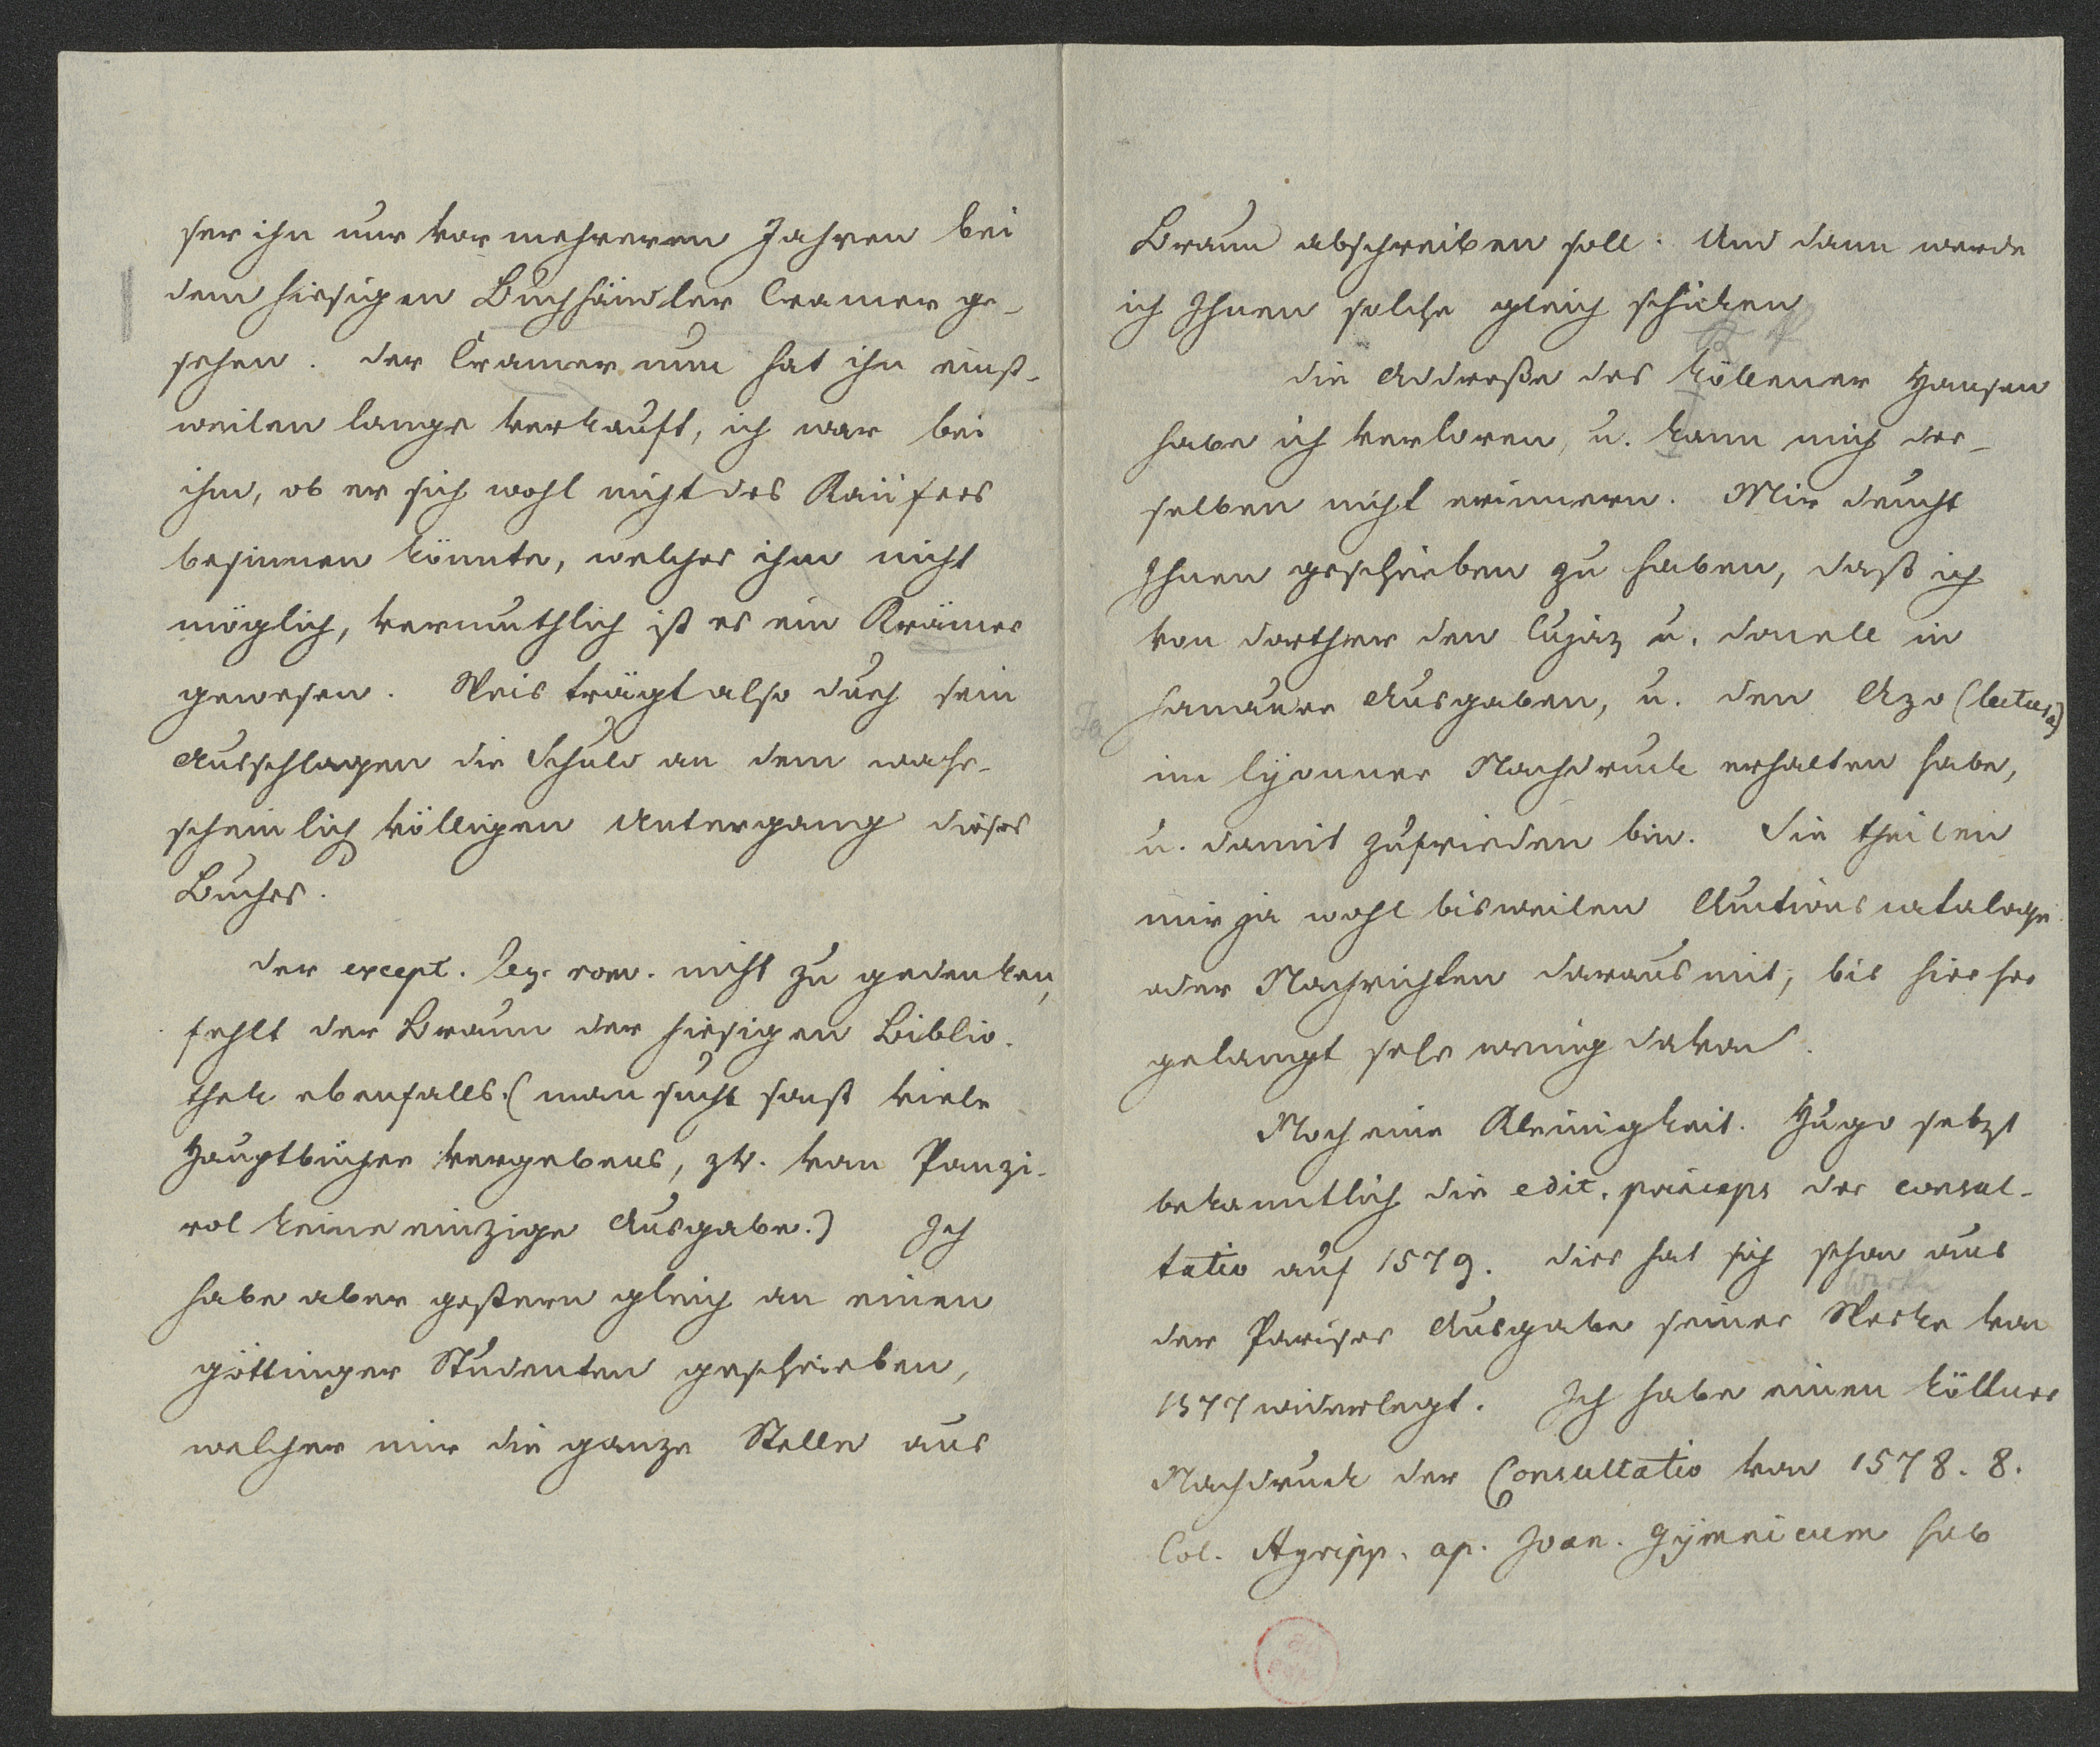 ser ihn nur vor mehreren Jahren bei
dem hiesigen Buchhändler Cramer ge-
sehen. der Cramer nun hat ihn einst-
weilen lange verkauft, ich war bei
ihm, ob er sich wohl nicht des Käufers
besinnen könnte, welches ihm nicht
möglich, vermuthlich ist es ein Krämer
gewesen. Weis trägt also durch sein
Ausschlagen die Schuld an dem wahr-
scheinlich völligen Untergang dieses
Buches.
der except. leg. rom. nicht zu gedenken,
fehlt der Braun der hiesigen Biblio-
thek ebenfalls. (man sucht sonst viele
Hauptbücher vergebens, zb. von Panzi-
rol keine einzige Ausgabe.) Ich
habe aber gestern gleich an einen
göttinger Studenten geschrieben,
welcher mir die ganze Stelle aus
Braun abschreiben soll. Und dann werde
ich Ihnen solche gleich schicken
die Addreße des Köllener Hansen
habe ich verloren, u. kann mich der-
selben nicht erinnern. Mir deucht
Ihnen geschrieben zu haben, daß ich
von dorther den Cujaz u. Donell in
hanauer Ausgaben, u. den Azo (lectura)
im lyonner Nachdruck erhalten habe,
u. damit zufrieden bin. Sie theilen
mir ja wohl bisweilen Auctionscataloge
oder Nachrichten daraus mit, bis hierher
gelangt sehr wenig davon.
Noch eine Kleinigkeit. Hugo setzt
bekanntlich die edit. princeps der consul-
tatio auf 1579. dies hat sich schon aus
Werke
der Pariser Ausgabe seiner Werke von
1577 widerlegt. Ich habe einen Köllner
Nachdruck der Consultatio von 1578. 8.
Col. Agripp. ap. Joan. Gymnicum sub